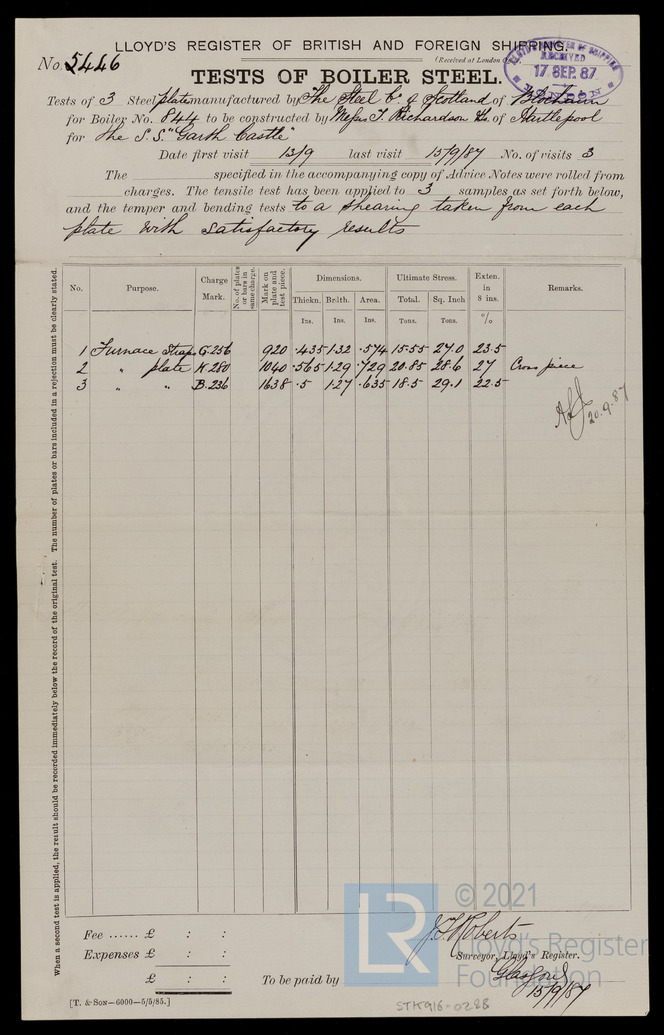 LLOYD'S REGISTER OF BRITISH AND FOREIGN SHIPPING.
No. 5446
(Received at London
RECEIVED
17 SEP. 87
LONDON
TESTS OF BOILER STEEL.
Tests of 3 Steel plates manufactured by The Steel Co of Scotland of Blochairn
for Boiler No. 844 to be constructed by Messrs T. Richardson & Co. of Hartlepool
for the S.S. "Garth Castle"
Date first visit 13/9 last visit 15/9/87 No. of visits 3
The specified in the accompanying copy of Advice Notes were rolled from
charges. The tensile test has been applied to 3 samples as set forth below,
and the temper and bending tests to a shearing taken from each
plate with satisfactory results
When a second test is applied, the result should be recorded immediately below the record of the original test. The number of plates or bars included in a rejection must be clearly stated.
No. Purpose. Charge Mark. No. of plates or bars in same charge. Mark on plate and test piece. Dimensions. Ultimate Stress. Exten. in 8 ins. Remarks.
Thickn. Brdth. Area. Total. Sq. Inch
Ins. Ins. Ins. Tons. Tons. %
1 Furnace Straps G.256 920 .435 1.32 .574 15.55 27.0 23.5
2 " plate K 280 1040 .565 1.29 .729 20.85 28.6 27 Cross piece
3 " " B.236 1638 .5 1.27 .635 18.5 29.1 22.5
20.9.87
Fee ...... £ : :
Expenses £ : :
£ : :
To be paid by
J. Roberts
Surveyor, Lloyd's Register.
Glasgow
15/9/87
[T. & Son—6000—5/5/85.]
STK916-0228
LR
© 2021
Lloyd's Register
Foundation